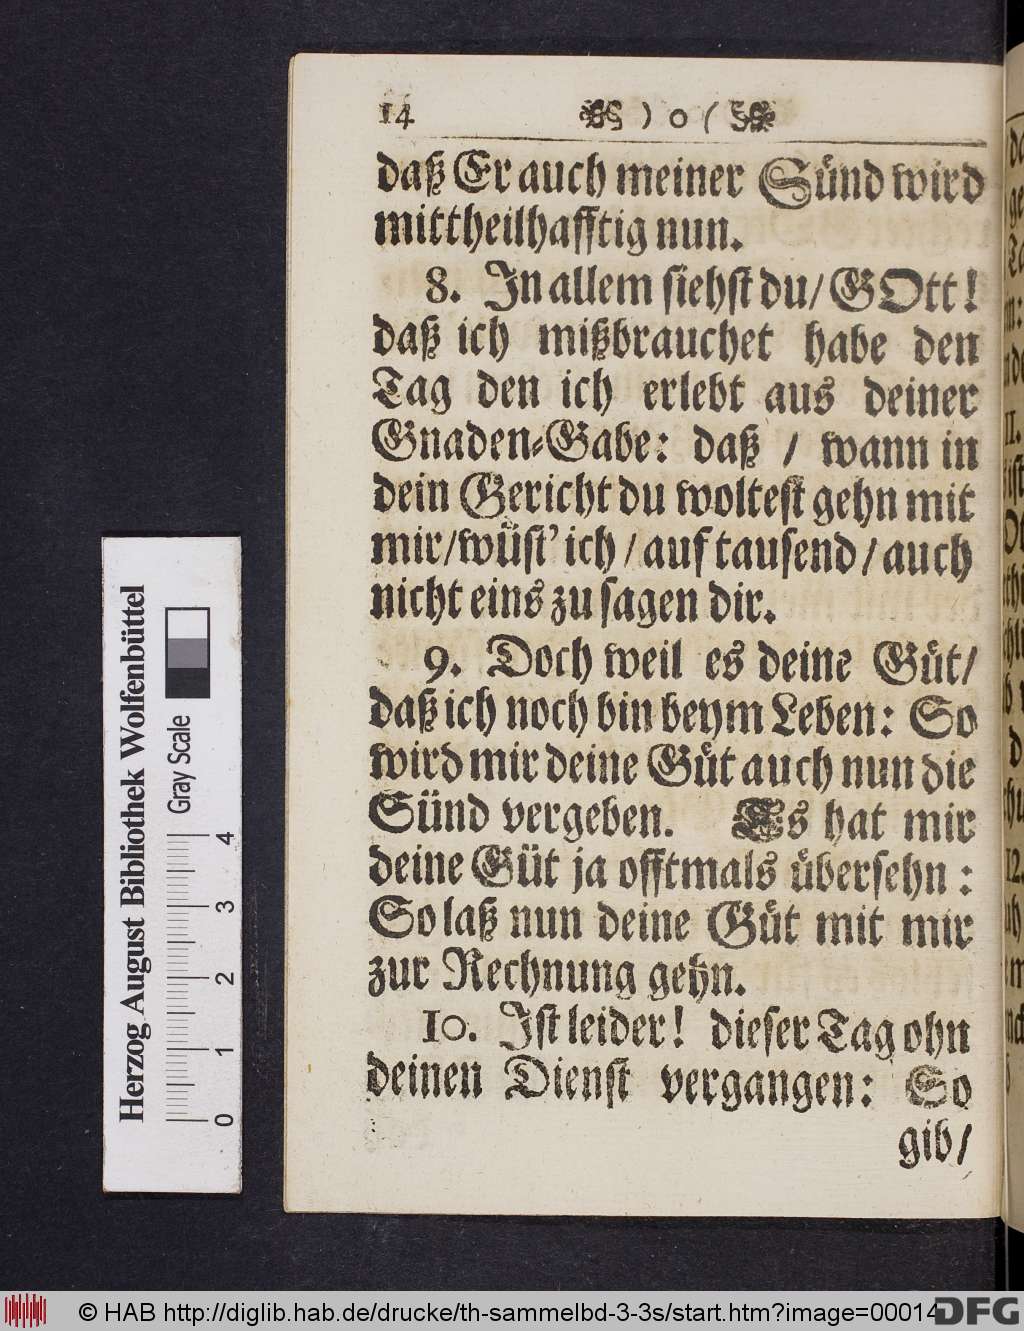 14 ) o (
daß Er auch meiner Sünd wird
mittheilhafftig nun.
8. In allem siehst du/ GOtt!
daß ich mißbrauchet habe den
Tag den ich erlebt aus deiner
Gnaden-Gabe: daß / wann in
dein Gericht du woltest gehn mit
mir/wüst' ich / auf tausend / auch
nicht eins zu sagen dir.
9. Doch weil es deine Güt/
daß ich noch bin beym Leben: So
wird mir deine Güt auch nun die
Sünd vergeben. Es hat mir
deine Güt ja offtmals übersehn :
So laß nun deine Güt mit mir
zur Rechnung gehn.
10. Ist leider! dieser Tag ohn
deinen Dienst vergangen: So
gib/
Herzog August Bibliothek Wolfenbüttel
Gray Scale
0 1 2 3 4
© HAB http://diglib.hab.de/drucke/th-sammelbd-3-3s/start.htm?image=00014
DFG